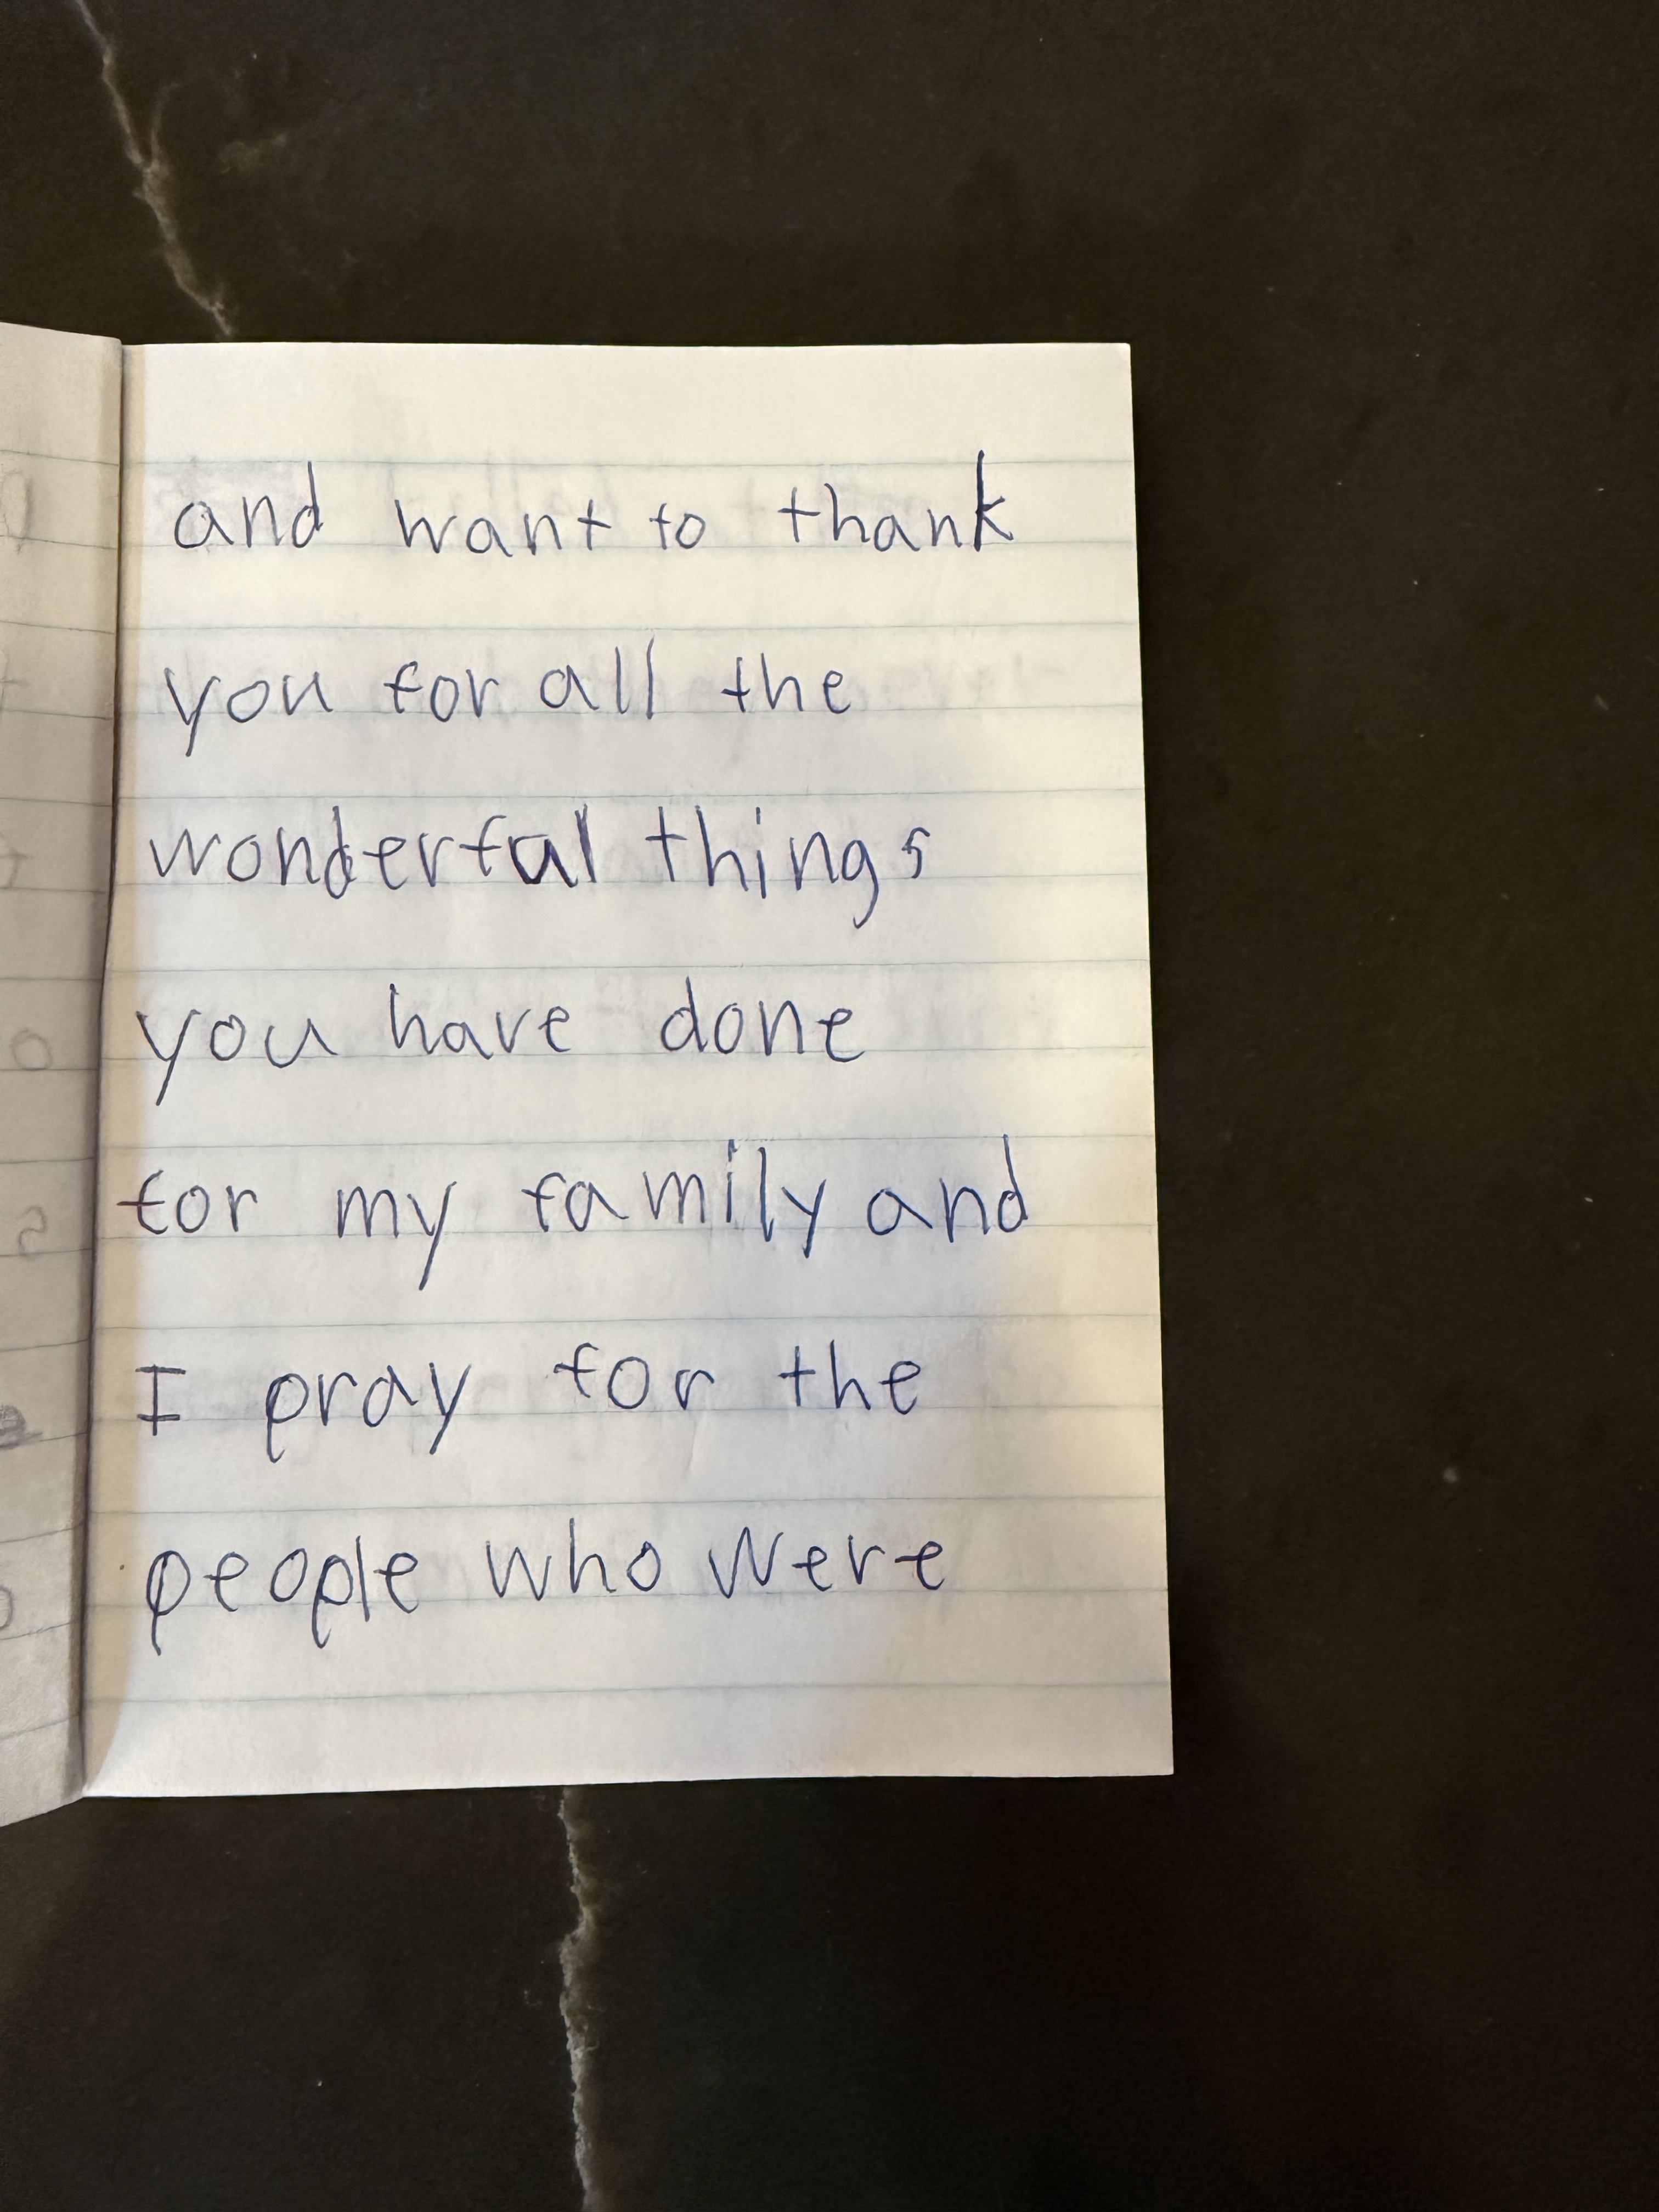 and want to thank
you for all the
wonderful things
you have done
for my family and
I pray for the
people who were